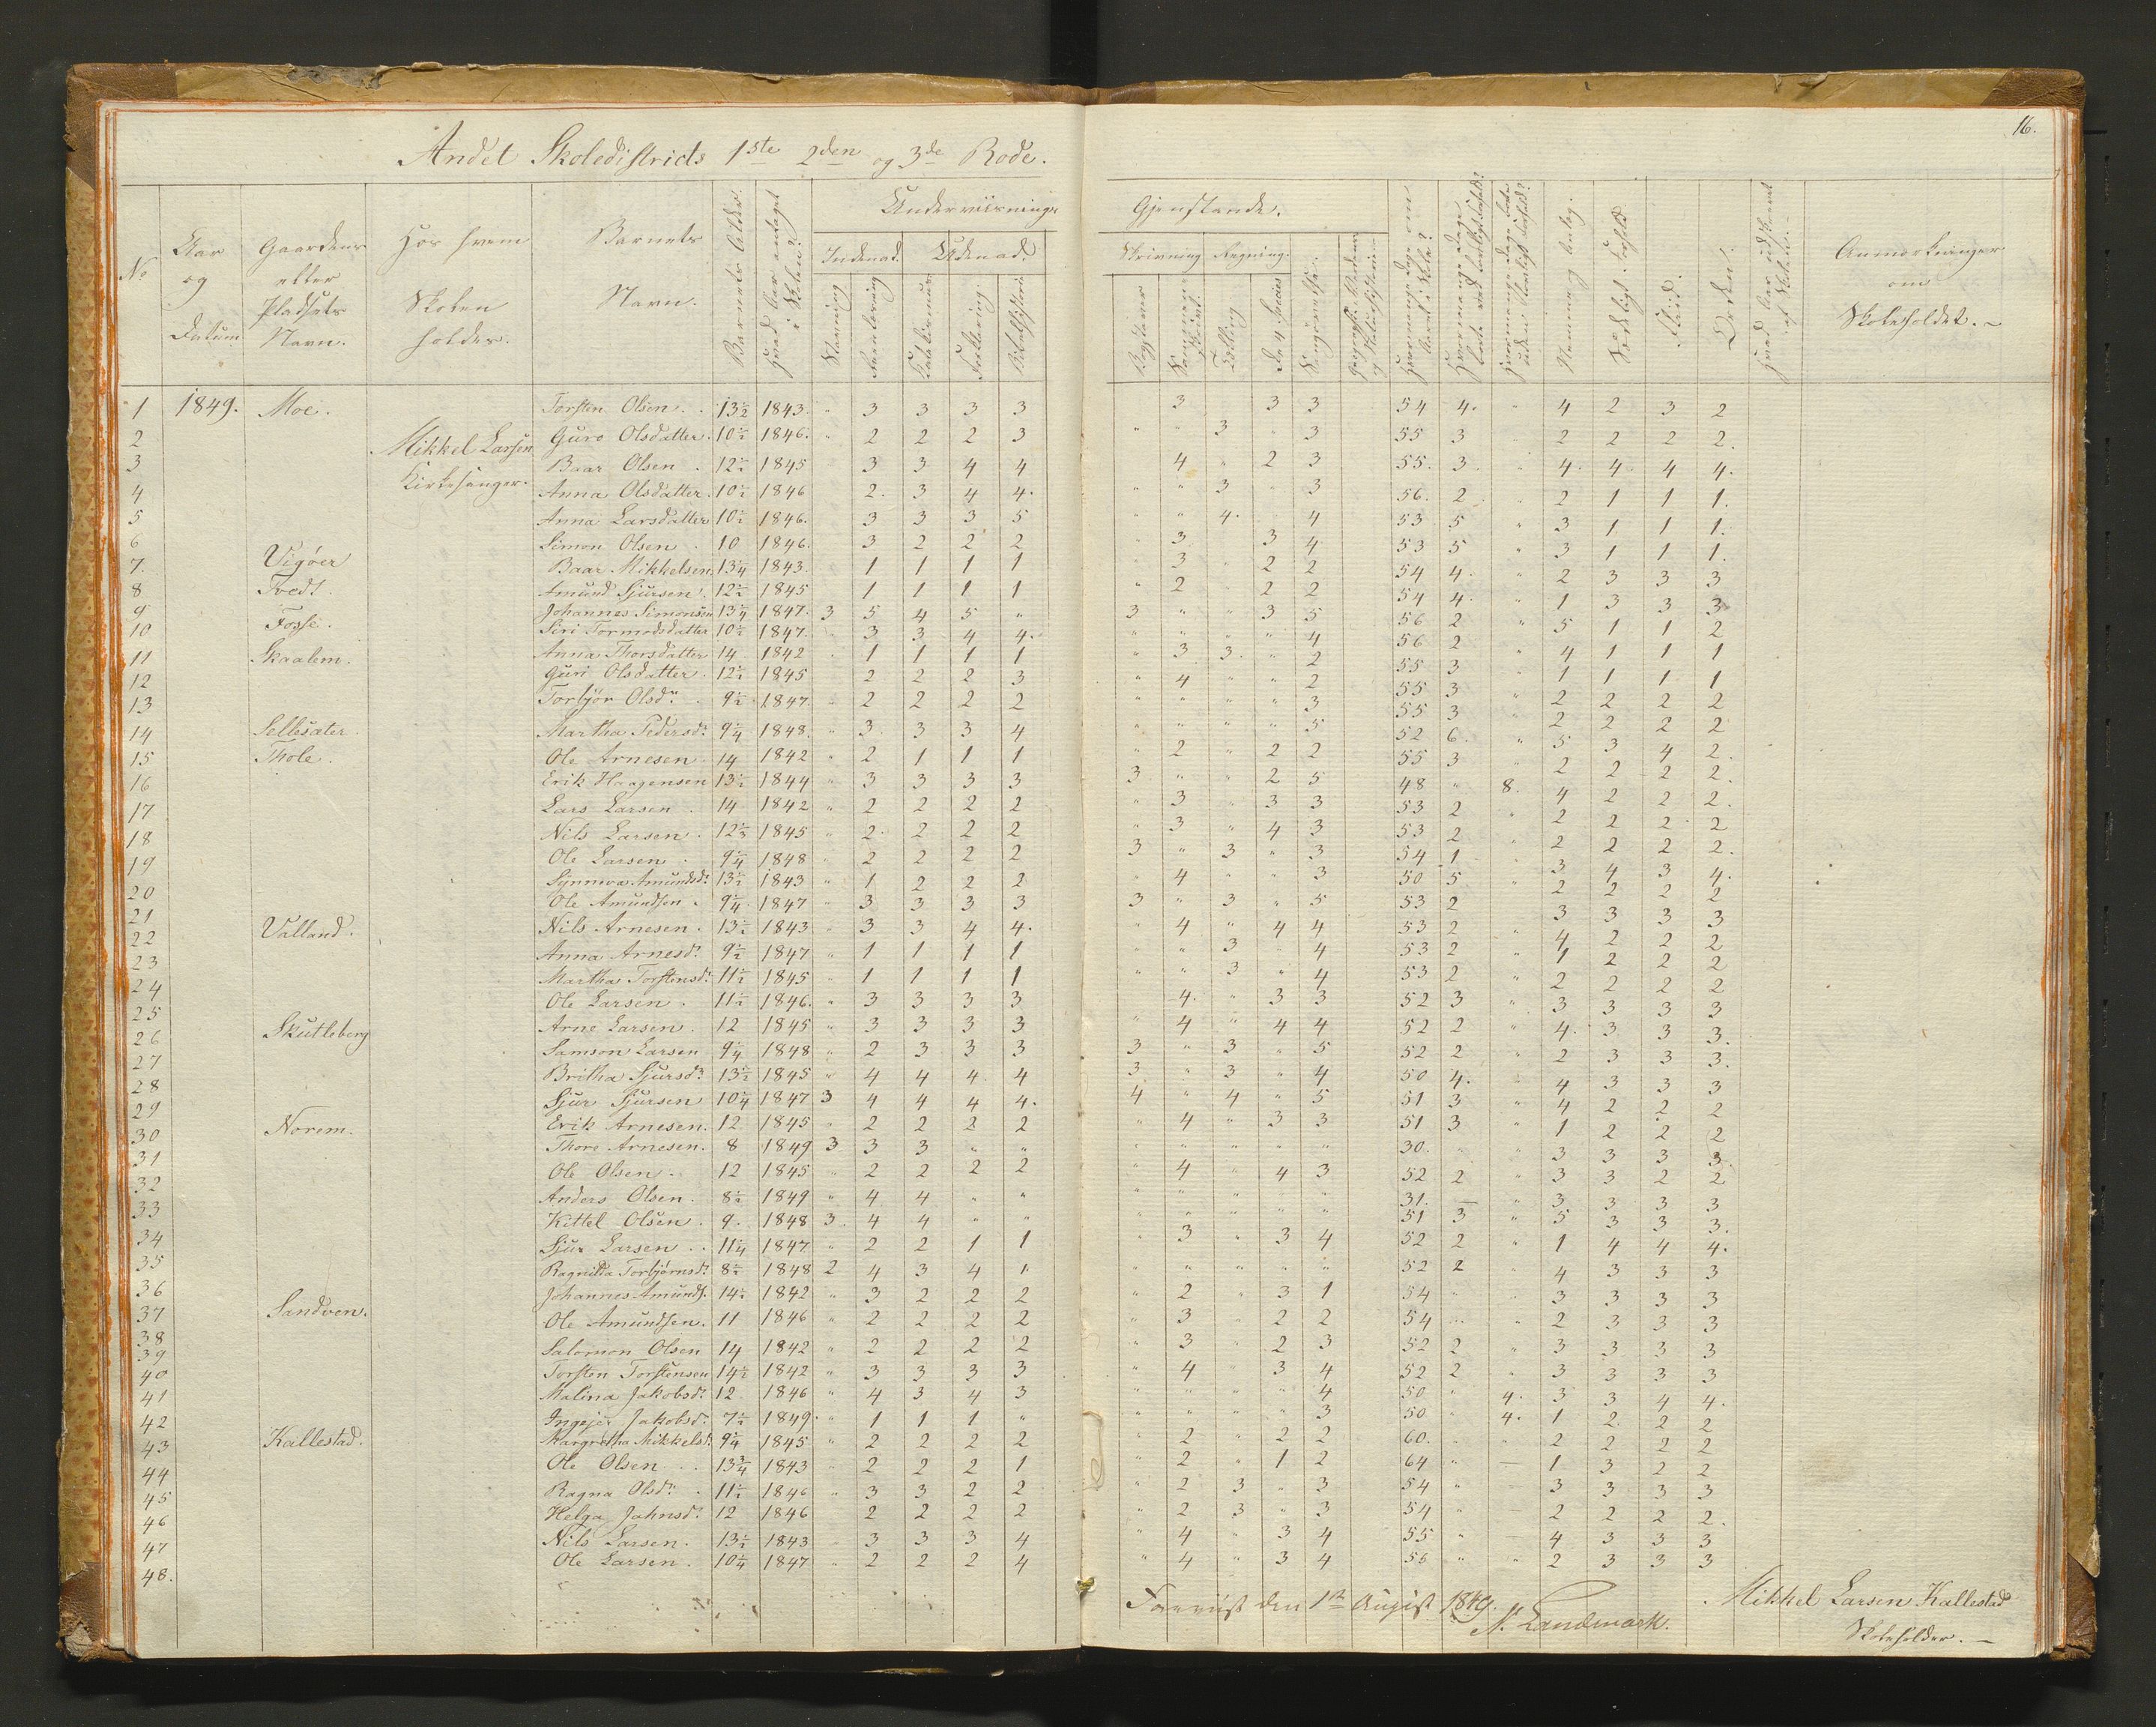 16.
Andet Skoledistricts 1ste 2den og 3de Rode.
Underviisnings Gjenstande.
No
Aar og Datum
Gaardens eller Pladsets Navn.
Hos hvem Skolen holdes.
Barnets Navn.
Barnets Alder.
Indenad.
Udenad.
Stavning
Forklaring.
Bibelhistorie
Skrivning
Regning.
Bogstaver
De 4 Species
Nemme
Flid.
Orden.
Anmærkninger om Skoleholdet.
Mikkel Larsen Kirkesanger.
1 1849. Moe. Torsten Olsen. 13½ 1843. " 3 3 3 3 3 3 3 54 4. " 4 2 3 2
2 Guro Olsdatter. 10½ 1846. " 2 2 2 3 " " 3 3 55 3 2 2 2 2.
3 Baar Olsen. 12½ 1845 3 3 4 4 4 " 2 3 55. 3 4. 4. 4 4.
4 Anna Olsdatter. 10½ 1846 2. 3 4 4. " " 3 3 56. 2 2 1 1 1.
5 Anna Larsdatter 10½ 1846. 3 3 3 5 " " 4. 4 53 5 " 3 1 1 1.
6 Simon Olsen 10 1846. 3 2 2 2 3 3 4 53 5 " 3 1 1 1.
7. Vigøer Baar Mikkelsen. 13¼ 1843. 1 1 1 1 3 2 2 54 4. 2 3 3 3
8 Tvedt. Amund Sjursen. 12½ 1845 1 1 1 1 " 2 2 2 54 4. 1 3 3 3
9 Fosse. Johannes Simonsen 13¼ 1847. 3 5 4 5 " 3 " " 3 5 56 2 " 5 1 1 2
10 Siri Tormodsdatter 10½ 1847. 3 3 4 4. " " " " 4 56 2 4 1 1 1
11 Skaalem. Anna Thorsdatter 14 1842 1 1 1 1 " 3 3. " 2 55 3 1 1 1 1
12 Guri Olsdatter. 12½ 1845 2 2 2 3 " 4 " " 2 55 3 2 2 2 2
13 Torbjør Olsdr. 9½ 1847. 2 2 2 2 " " " " 3 55 3 2 2 2 2
14 Sellesæter. Martha Pedersdr. 9¼ 1848. " 3 3 3 4 " " " " 5 52 6. " 5 3 4 2.
15 Thole. Ole Arnesen 14 1842 " 2 1 1 1 " 2 " 2 2 55 3 2 2 2 2.
16 Erik Haagensen 13½ 1844 " 3 3 3 3 3 " " 2 5 48 " 8. 4 2 2 2.
17 Lars Larsen. 14 1842 " 2 2 2 2 " 3 " 3 3 53 2 " 2 2 2 2
18 Nils Larsen. 1845 " 2. 2 2 2 " 3 " 4 3 53 2 2 2 2 2.
19 Ole Larsen. 9¼ 1848 " 2 2 2 2 3 " 3 " 3 54 1 3 4 3 4.
20 Synneva Amundsdr. 13½ 1843 " 1 2 2 2 4 " " 3 50 5 " 2 2 2 2
21 Ole Amundsen. 9¼ 1847 3 3 3 3 3 " 3 " 5 53 2 3 3 3 3
22 Valland. Nils Arnesen. 13½ 1843 3 3 4 4. " 4 " 4 4 53 2 " 4 2 2 2
23 Anna Arnesdr. 9½ 1847 " 1 1 1 1 " " 3 " 4 53 2 " 1 2 2 2
24 Martha Torstensdr. 11½ 1845 " 1 1 1 1 " " 3 " 4 53 2 " 2 2 2 2
25 Ole Larsen. 11½ 1846. " 3 3 3 3 4. " 3 3 52 3 " 3 3 3 3
26 Skutleberg Arne Larsen. 12 1845 " 3 3 3 3 " 4 " 4 4 52 2 " 4. 3 3 3.
27 Samson Larsen 9¼ 1848 " 2 3 3 3 3 " 3 " 5 52 2 " 2 3 3 3.
28 Britha Sjursdr. 13½ 1845 " 4 4 4 4 3 " 3 " 4 50 4. 4 3 3 3
29 Sjur Sjursen 10¼ 1847 3 4 4 4 4. 4 " 4 " 5 51 3 " 4 2 2 2
30 Norem. Erik Arnesen. 12 1845 " 2 2 2 2 " 4 " 3 3 51 3 " 1 2 2 2
31 Thore Arnesen. 8 1849 3 3 3 " " " " " " " 30. " " 3 3 3 3.
32 Ole Olsen. 12 1845 " 2 2 2 2 " 4 " 4 3 52 2 " 3 3 2 2
33 Anders Olsen. 8½ 1849 " 4 4 " " " " " " 31. — " 3 3 3 3
34 Kittel Olsen. 9. 1848 3. 4 4 " " " " " " " 51 3 " 5 3 3 3.
35 Sjur Larsen. 11¼ 1847 " 2 2 1 1 " 3 " 3 4 52 2 " 1 4 4 4.
36 Ragnilda Torbjørnsdr. 8½ 1848 2 4 3 4 " " " " " 52 2 4 3 3 3
37 Sandven. Johannes Amunds. 14½ 1842 " 3 2 2 2 " 2 " 3 1 54 " " 3 3 3 3
38 Ole Amundsen. 11 1846 " 2 2 2 2 " 3 " 2 2 54 " " 2 3 3 3
39 Salomon Olsen 14 1842 " 2 2 2 2 " 3 " 2 3 52 2 " 3 3 3 3
40 Torsten Torstensen 14½ 1842 " 3 3 3 3 " 4 " 3 4 52 2 " 3 3 3 3
41 Malina Jakobsdr. 12 1846 " 4 3 4 3 " " " " 4 50 " 4. 3 3 4 4.
42 Ingejer Jakobsd. 7½ 1849. " 1 1 1 " " " " " 3 50 " 4. 1 2 2 2
43 Kallestad. Margretha Mikkelsd. 9¼ 1845 " 2 2 2 2 " 2 " 2 2 60. " " 2 2 2 2
44 Ole Olsen. 13¾ 1843 " 2 2 2 1 " 2 " 1 2 64 " — 1 3 2 2
45 Ragna Olsdr. 11½ 1846 " 3 3 2 2 " 2 3 " 3 54 " 3 3 3 3
46 Helga Jahnsdr. 12 1846 2 2 2 2 " 2 3 " 3 54 " — 2 2 2 2.
47 Nils Larsen. 13½ 1843 3 3 3 4 " 4 " 3 4 55 " — 4 3 3 3
48. Ole Larsen. 10¼ 1847 " 2 2 2 4 " 4 " 3 4 56 " " 2 3 3 3
Foreviist den 1ste August 1849.
N. Landmark.
Mikkel Larsen Kallestad
Skoleholder. —